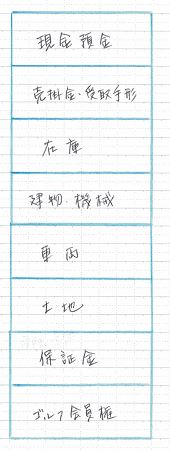 現金預金
売掛金・受取手形
在庫
建物・機械
車両
土地
保証金
ゴルフ会員権